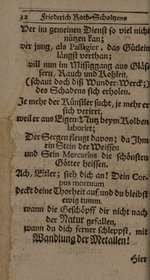 32 Friederich Roth-Scholtzens
Der in gemeinen Dienst so viel nicht
nützen kan;
der jung, als Passagier, das Gütlein
längst verthan;
will nun im Müssiggang aus Gläs-
sern, Rauch und Kohlen,
(schau doch diß Wunder-Werck!)
des Schadens sich erholen.
Je mehr der Künstler sucht, je mehr er
sich verirret;
weil er aus Eigen-Nutz beym Kolben
laboriret;
Der Seegen fleugt davon; da Ihm
ein Stein der Weissen
und Sein Mercurius die schönsten
Götter heissen.
Ach, Eitler; sieh dich an! Dein Cor-
pus mortuum
deckt deine Thorheit auf und du bleibst
ewig tumm.
wann die Geschöpff dir nicht nach
der Natur gefallen,
wann du dich ferner schleppst, mit
Wandlung der Metallen!
Hier